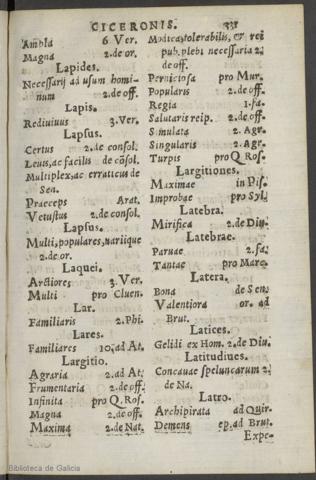 CICERONIS. 331
Ambla 6 Ver.
Magna 2. de or.
Lapides.
Necessarij ad usum homi-
num 2. de off.
Lapis.
Rediuiuus 3. Ver.
Lapsus.
Certus 2. de consol.
Leuis, ac facilis de cõsol.
Multiplex, ac erraticus de
Sen.
Praeceps Arat.
Vetustus 2. de consol.
Lapsus.
Multi, populares, uariique
2. de or.
Laquei.
Arctiores 3. Ver.
Multi pro Cluen.
Lar.
Familiaris 2. Phi.
Lares.
Familiares 10. ad At.
Largitio.
Agraria 2. ad At.
Frumentaria 2. de off.
Infinita pro Q. Ros.
Magna 2. de off.
Maxima 2. de Nat.
Modica, tolerabilis, & rei
pub. plebi necessaria 2.
de off.
Perniciosa pro Mur.
Popularis 2. de off.
Regia 1. fa.
Salutaris reip. 2. de off.
Simulata 2. Agr.
Singularis 2. Agr.
Turpis pro Q. Ros.
Largitiones.
Maximae in Pis.
Improbae pro Syl.
Latebra.
Mirifica 2. de Diu.
Latebrae.
Paruae 2. fa.
Tantae pro Marc.
Latera.
Bona de Sen.
Valentiora or. ad
Brut.
Latices.
Gelidi ex Hom. 2. de Diu.
Latitudines.
Concauae speluncarum 2.
de Na.
Latro.
Archipirata ad Quir.
Demens ep. ad Brut.
Expe-
Biblioteca de Galicia